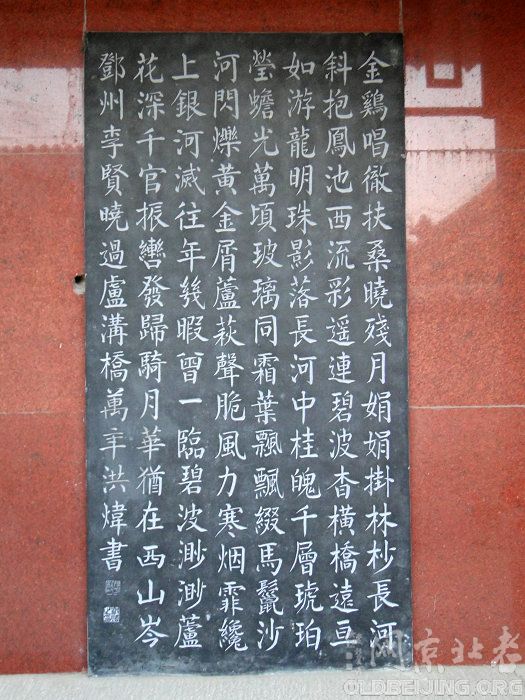 金鷄唱徹扶桑曉殘月娟娟掛林杪長河
斜抱鳳池西流彩遥連碧波杳橫橋遠亘
如游龍明珠影落長河中桂魄千層琥珀
瑩蟾光萬頃玻璃同霜葉飄飄綴馬鬣沙
河閃爍黃金屑蘆荻聲脆風力寒烟霏纔
上銀河滅往年幾暇曾一臨碧波渺渺蘆
花深千官振轡發歸騎月華猶在西山岑
鄧州李賢曉過盧溝橋萬洪煒書
老北京网
OLDBEIJING.ORG